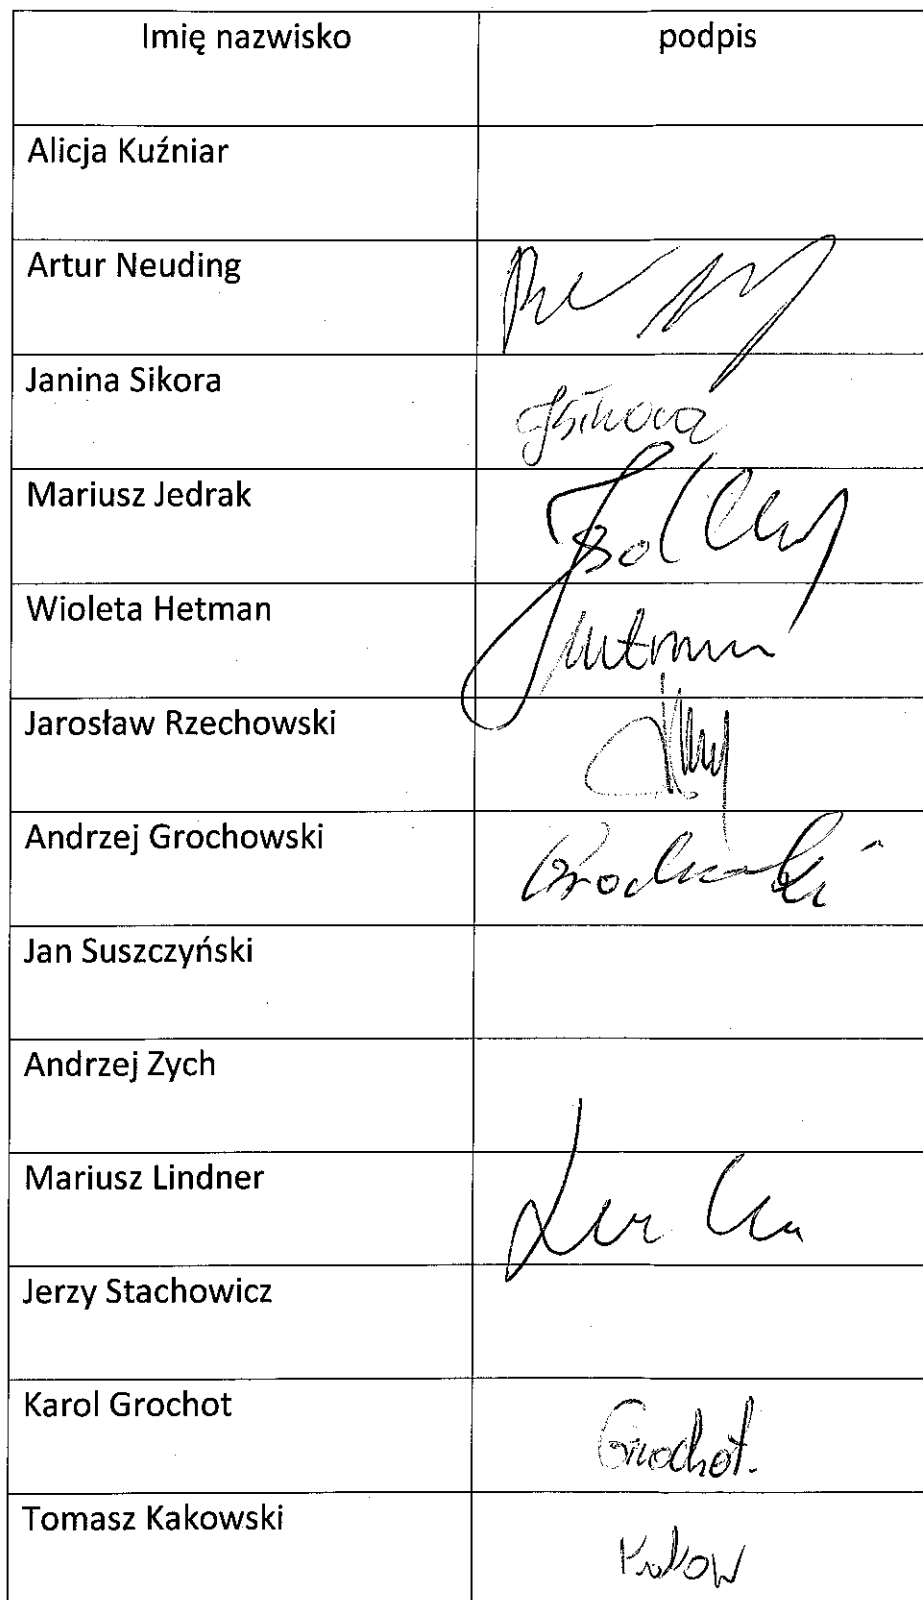 Imię nazwisko podpis
Alicja Kuźniar
Artur Neuding
Janina Sikora JSikora
Mariusz Jedrak
Wioleta Hetman
Jarosław Rzechowski
Andrzej Grochowski
Jan Suszczyński
Andrzej Zych
Mariusz Lindner
Jerzy Stachowicz
Karol Grochot Grochot.
Tomasz Kakowski